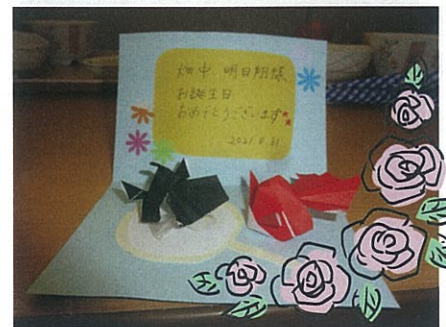 畑中 明日翔様
お誕生日
おめでとうございます
2021.8.31